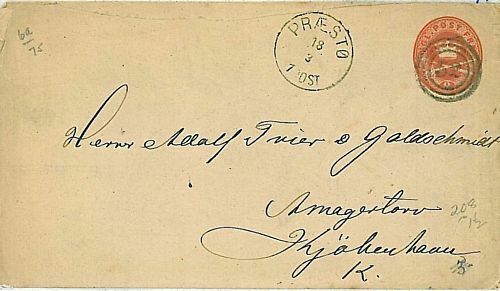 6a
75
PRÆSTØ
18
3
1 POST
KGL. POST FRM.
Herrer Adolf Trier & Goldschmidt
Amagertorv
Kjöbenhavn
K.
208